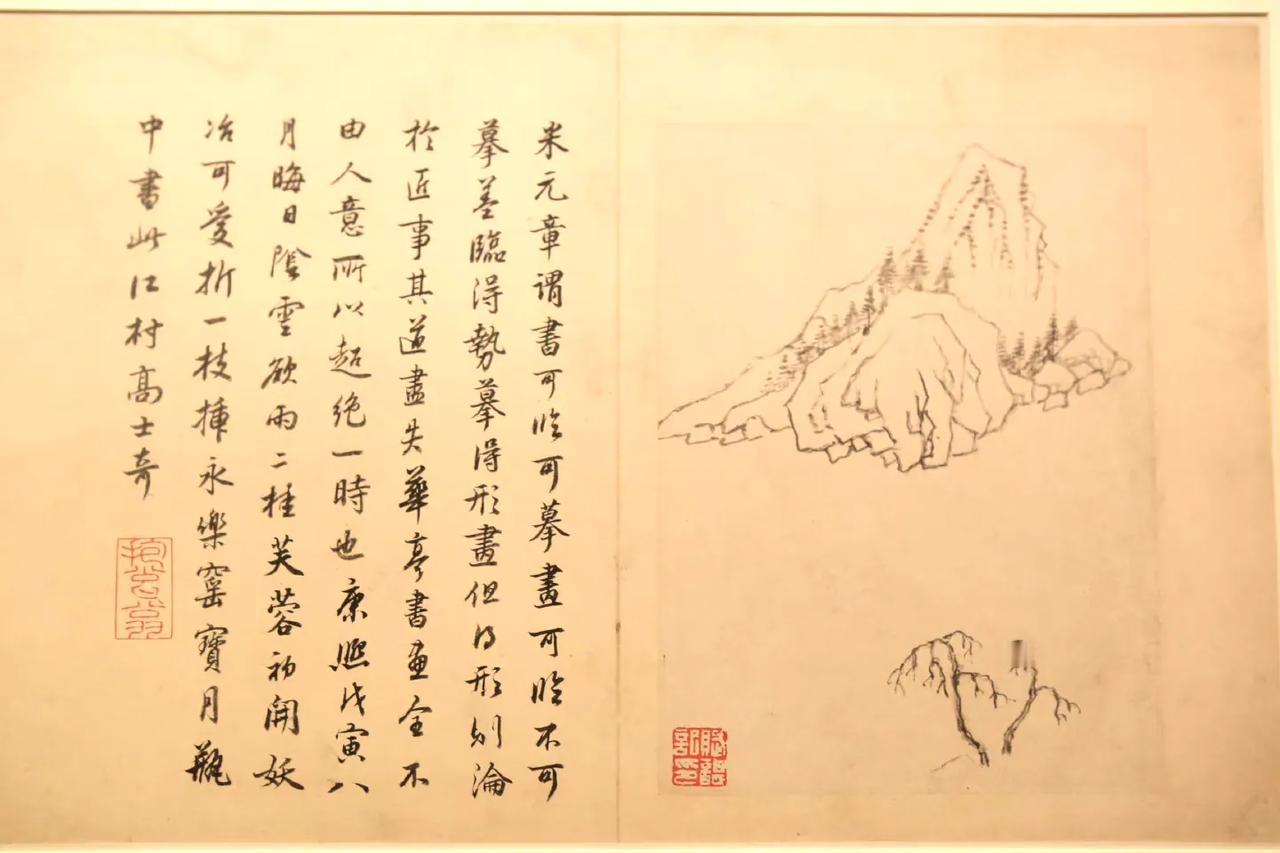 米元章謂書可臨可摹畫可臨不可
摹蓋臨得勢摹得形畫但得形則淪
於匠事其道盡失華亭書畫全不
由人意所以超絶一時也康熙戊寅八
月晦日陰雲欲雨二種芙蓉初開妖
冶可愛折一枝揷永樂窑寶月瓶
中書此江村高士奇
抱瓮翁